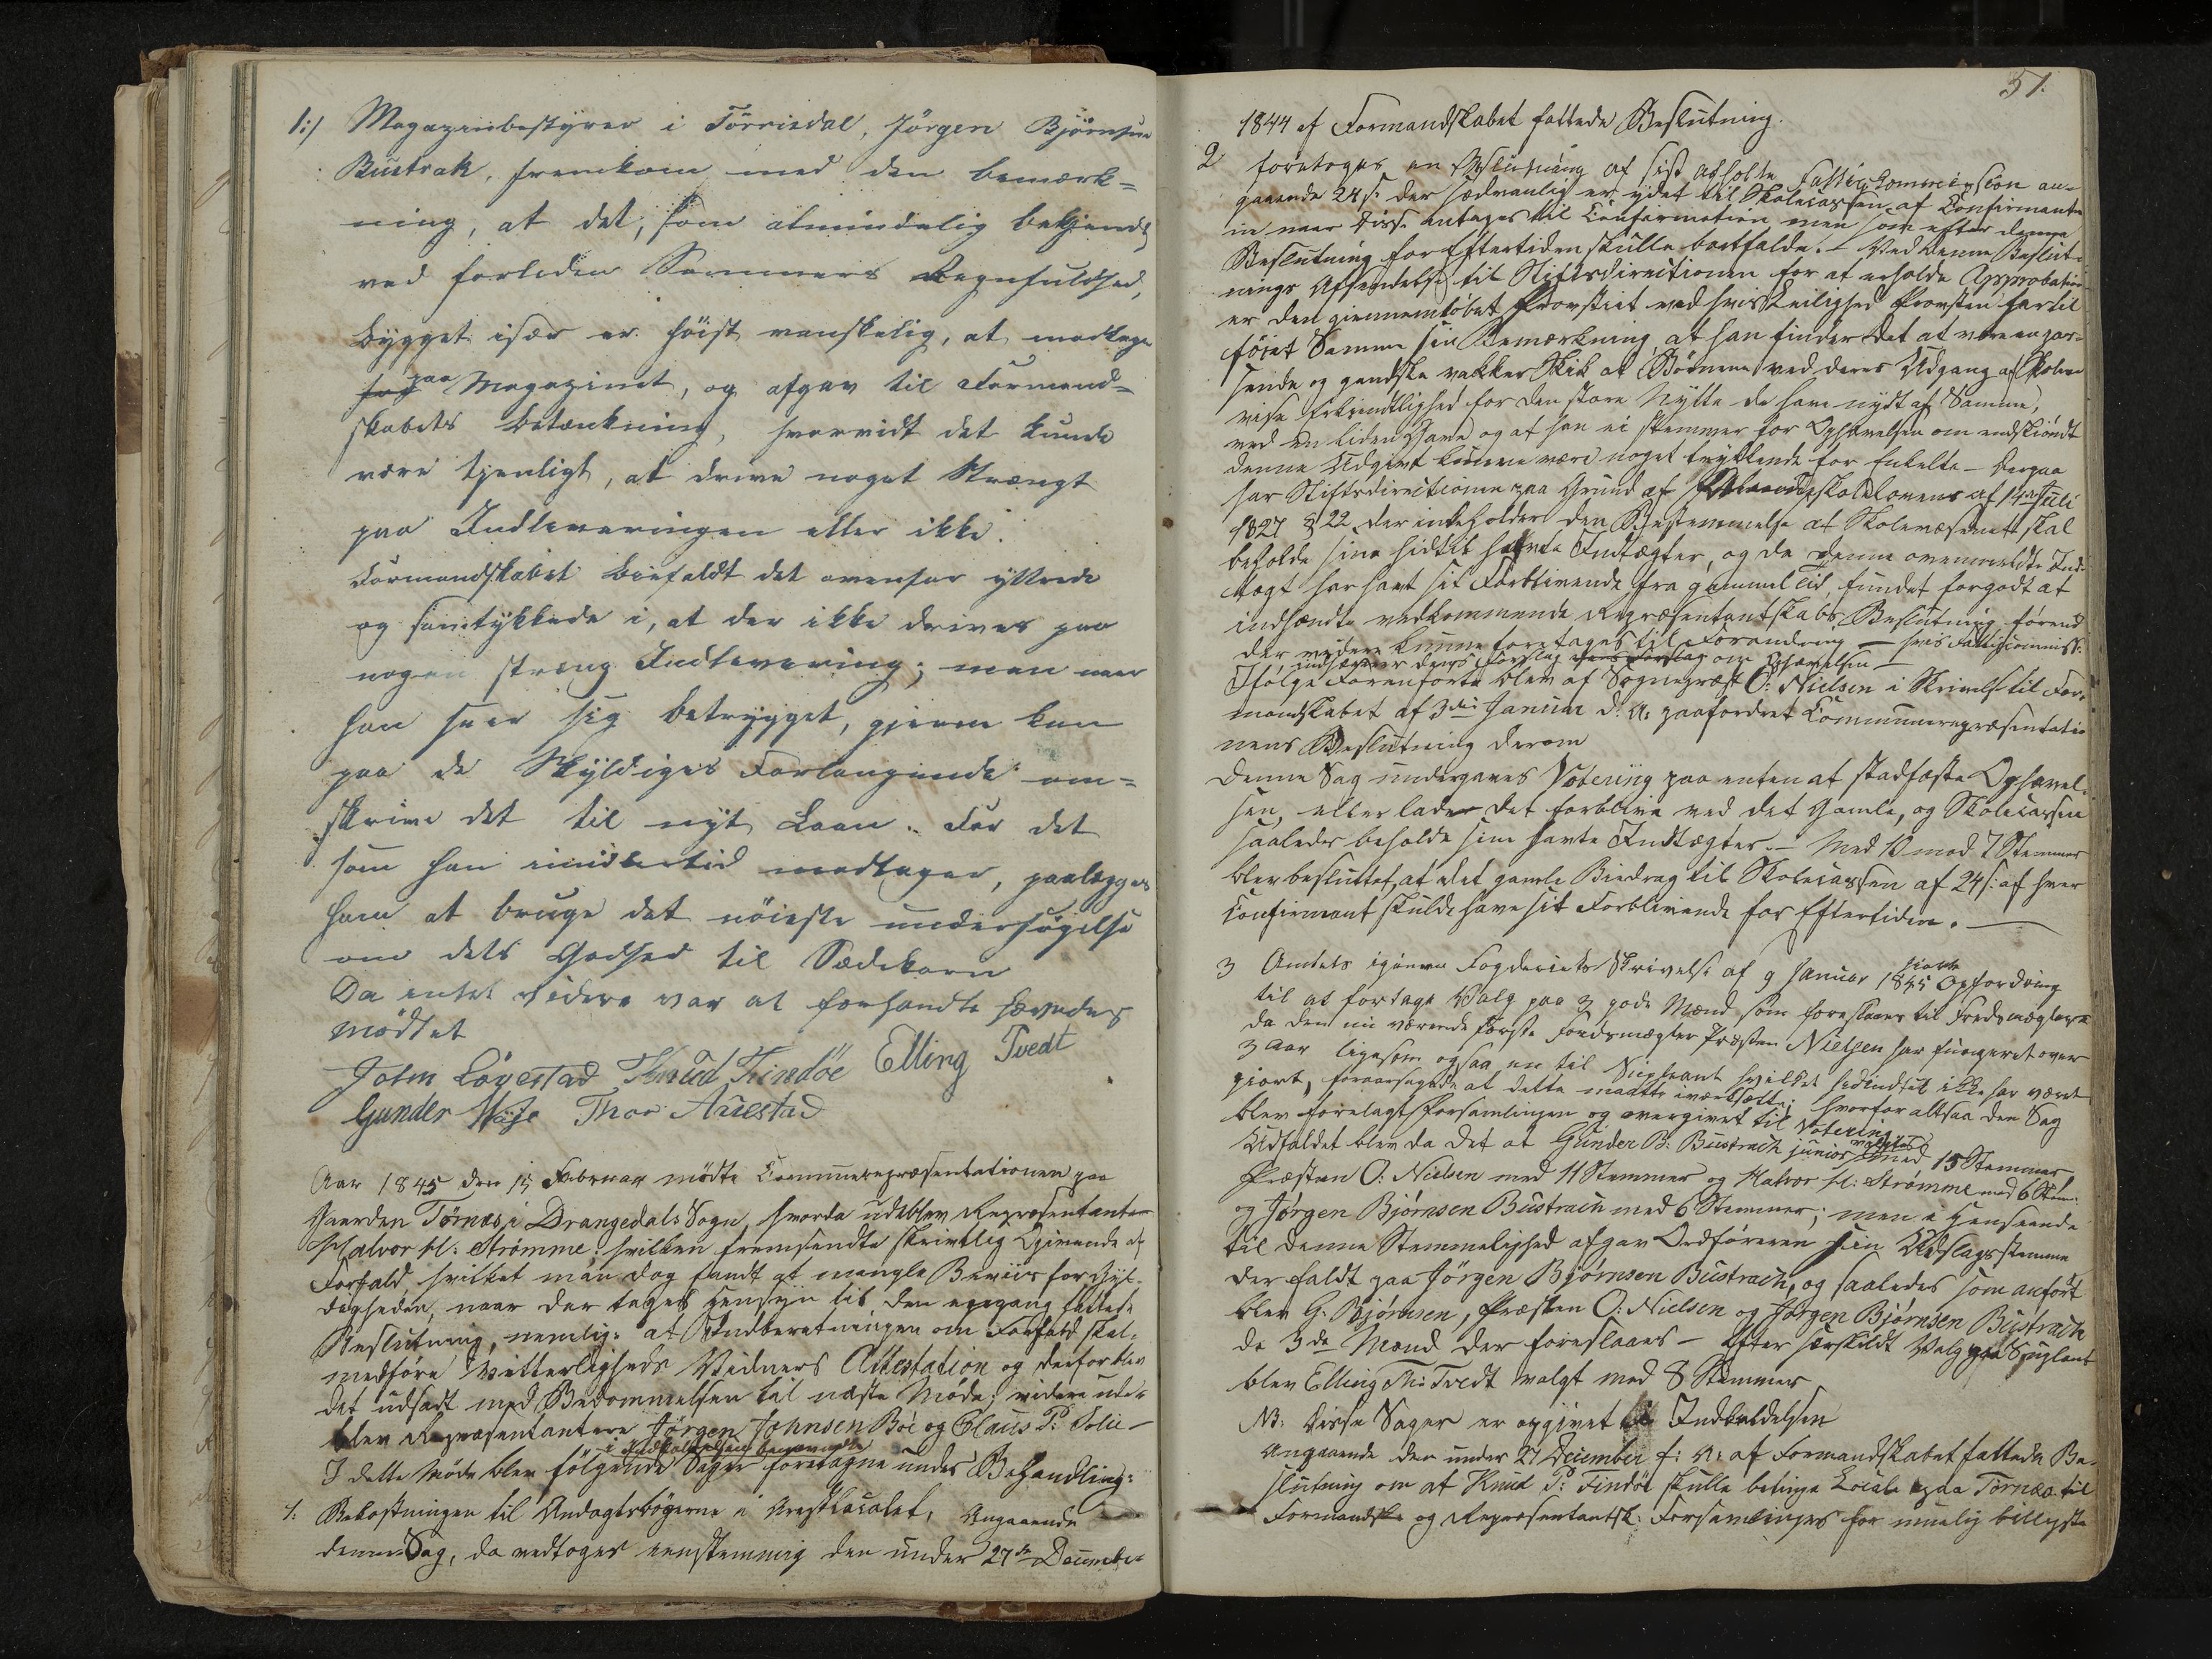 1:/ Magazinbestyrer i Törrisdal, Jörgen Björnsen
Bustrak, fremkom med den bemærk-
ning, at det, som almindelig bekjendt
ved forleden Sommers Regnfuldhed,
bygget især er höist vanskelig, at modtage
paa Magazinet, og afgav til Formand-
skabets Betænkning, hvorvidt det kunde
være tjenligt, at drive noget strængt
paa Indleveringen eller ikke.
Formandskabet biefaldt det ovenfor yttrede
og samtykkede i, at der ikke drives paa
nogen stræng Indlevering; men naar
han seer sig betrygget, gjerne kan
paa de Skyldiges Forlangende om-
skrive det til nyt Laan. For det
som han imidlertid modtager, paalægges
ham at bruge det nöieste undersögelse
om dets Godhed til Sædekorn
Da intet videre var at forhandle hævedes
mödtet
John Lövestad Knud Tindöe Elling Tvedt
Gunder Thor Auestad
Aar 1845 den 15 Februar mödte Communerepræsentationen paa
Gaarden Törnes i Drangedals Sogn, hvorda udeblev Repræsentanten
Halvor H: Strömme: hvilken fremsendte skrivtlig Givende af
Forfald hvilket man dog fandt at mangle Beviis for Gyl-
digheden, naar der tages Hensyn til den engang fattede
Beslutning, nemlig: at Indberetningen om Forfald skal
medföre Vitterligheds Vidners Attestation og derfor blev
det udsadt med Bedömmelsen til næste Möde; videre ude-
blev Repræsentantere Jörgen Johnsen Böe og Claus P:
i Indkaldelsen benævndte
I dette Möde blev fölgende Sager foretagne under Behandling:
1: Bekostningen til Andagtsbögerne i Arrestlocalet, Angaaende
denne Sag, da vedtoges eenstemmig den under 27de December
51.
1844 af Formandskabet fattede Beslutning.
2 foretoges en Beslutning af sidst afholdte Fattigcommission an-
gaaende 24 s: der sædvanlig er ydet til Skolecassen af Confirmanter-
ne naar disse antages til Confirmation men som efter denne
Beslutning for Eftertiden skulle bortfalde. – Ved denne Beslut-
nings Afsendelse til Stiftsdirectionen for at erholde Approbation
er den giennemlöbet Provstiet ved hvis Leilighed Provsten har til
föiet Samme sin Bemærkning, at han finder det at være en pas-
sende og gandske vakker Skik at Börnene ved deres Udgang af Skolen
vise Erkjendtlighed for den store Nytte de have nydt af Samme,
ved en liden Gave og at han ei stemmer for Ophævelsen om endskiöndt
denne Udgivt kunne være noget trykkende for Enkelte – Derpaa
har Stiftsdirectionen paa Grund af Skolelovens af 14de Juli
1827 § 22 der indeholder den Bestemmelse at Skolevæsenet skal
beholde sine hidtil havte Indtægter, og da denne ovenmeldte Ind-
tægt har havt sit Forblivende fra gammel Tid, fundet forgodt at
indhændte vedkommende Repræsentantskabs Beslutning förend
der videre kunne foretages til Forandring – hvis Fattigcommiss:
indhæver deres Forslag om Ophævelsen –
Ifölge Foranförte blev af Sognepræst O: Nielsen i Skrivelse til For-
mandskabet af 3die Januar d: A: paafordret Communerepræsentatio
nens Beslutning derom
Denne Sag undergaves Votering paa enten at stadfæste Ophævel-
sen, eller lade det forblive ved det Gamle, og Skolecassen
saaledes beholde sine havte Indtægter. – Med 10 mod 7 Stemmer
blev besluttet, at det gamle Bidrag til Skolecassen af 24 s: af hver
Confirmant skulde have sit Forblivende for Eftertiden. –
3 Amtets igiennem Fogderiets Skrivelse af 9 Januar 1845 Opfordring
til at foretage Valg paa 3 gode Mænd som foreslaaes til Fredsmæglere
da den nu værende förste Fredsmægler Præsten Nielsen har fungeret over
3 Aar ligesom ogsaa en til Supleant hvilket hidindtil ikke har været
giort, foraarsagede at dette maatte iværksætte: hvorfor altsaa den Sag
blev forelagt Forsamlingen og overgivet til Votering
Udfaldet blev da det at Gunder B: Bustrach junior valgtes med 15 Stemmer
Præsten O: Nielsen med 11 Stemmer og Halvor H: Strömme med 6 Stem:
og Jörgen Björnsen Bustrach med 6 Stemmer; men i Henseende
til denne Stemmelighed afgav Ordföreren sin Udslagsstemme
der faldt paa Jörgen Björnsen Bustrach, og saaledes som anfört
blev G. Björnsen, Præsten O: Nielsen og Jörgen Björnsen Bustrach
de 3de Mænd der foreslaaes – Efter særskildt Valg paa Supleant
blev Elling Th: Tvedt valgt med 8 Stemmer
NB: Disse Sager er opgivet i Indkaldelsen
Angaaende den under 27 December f: A: af Formandskabet fattede Be-
slutning om at Knud P: Tindöe skulle betinge Locale paa Törnes til
Formandsk: og Repræsentantsk: Forsamlinger for muelig billigste